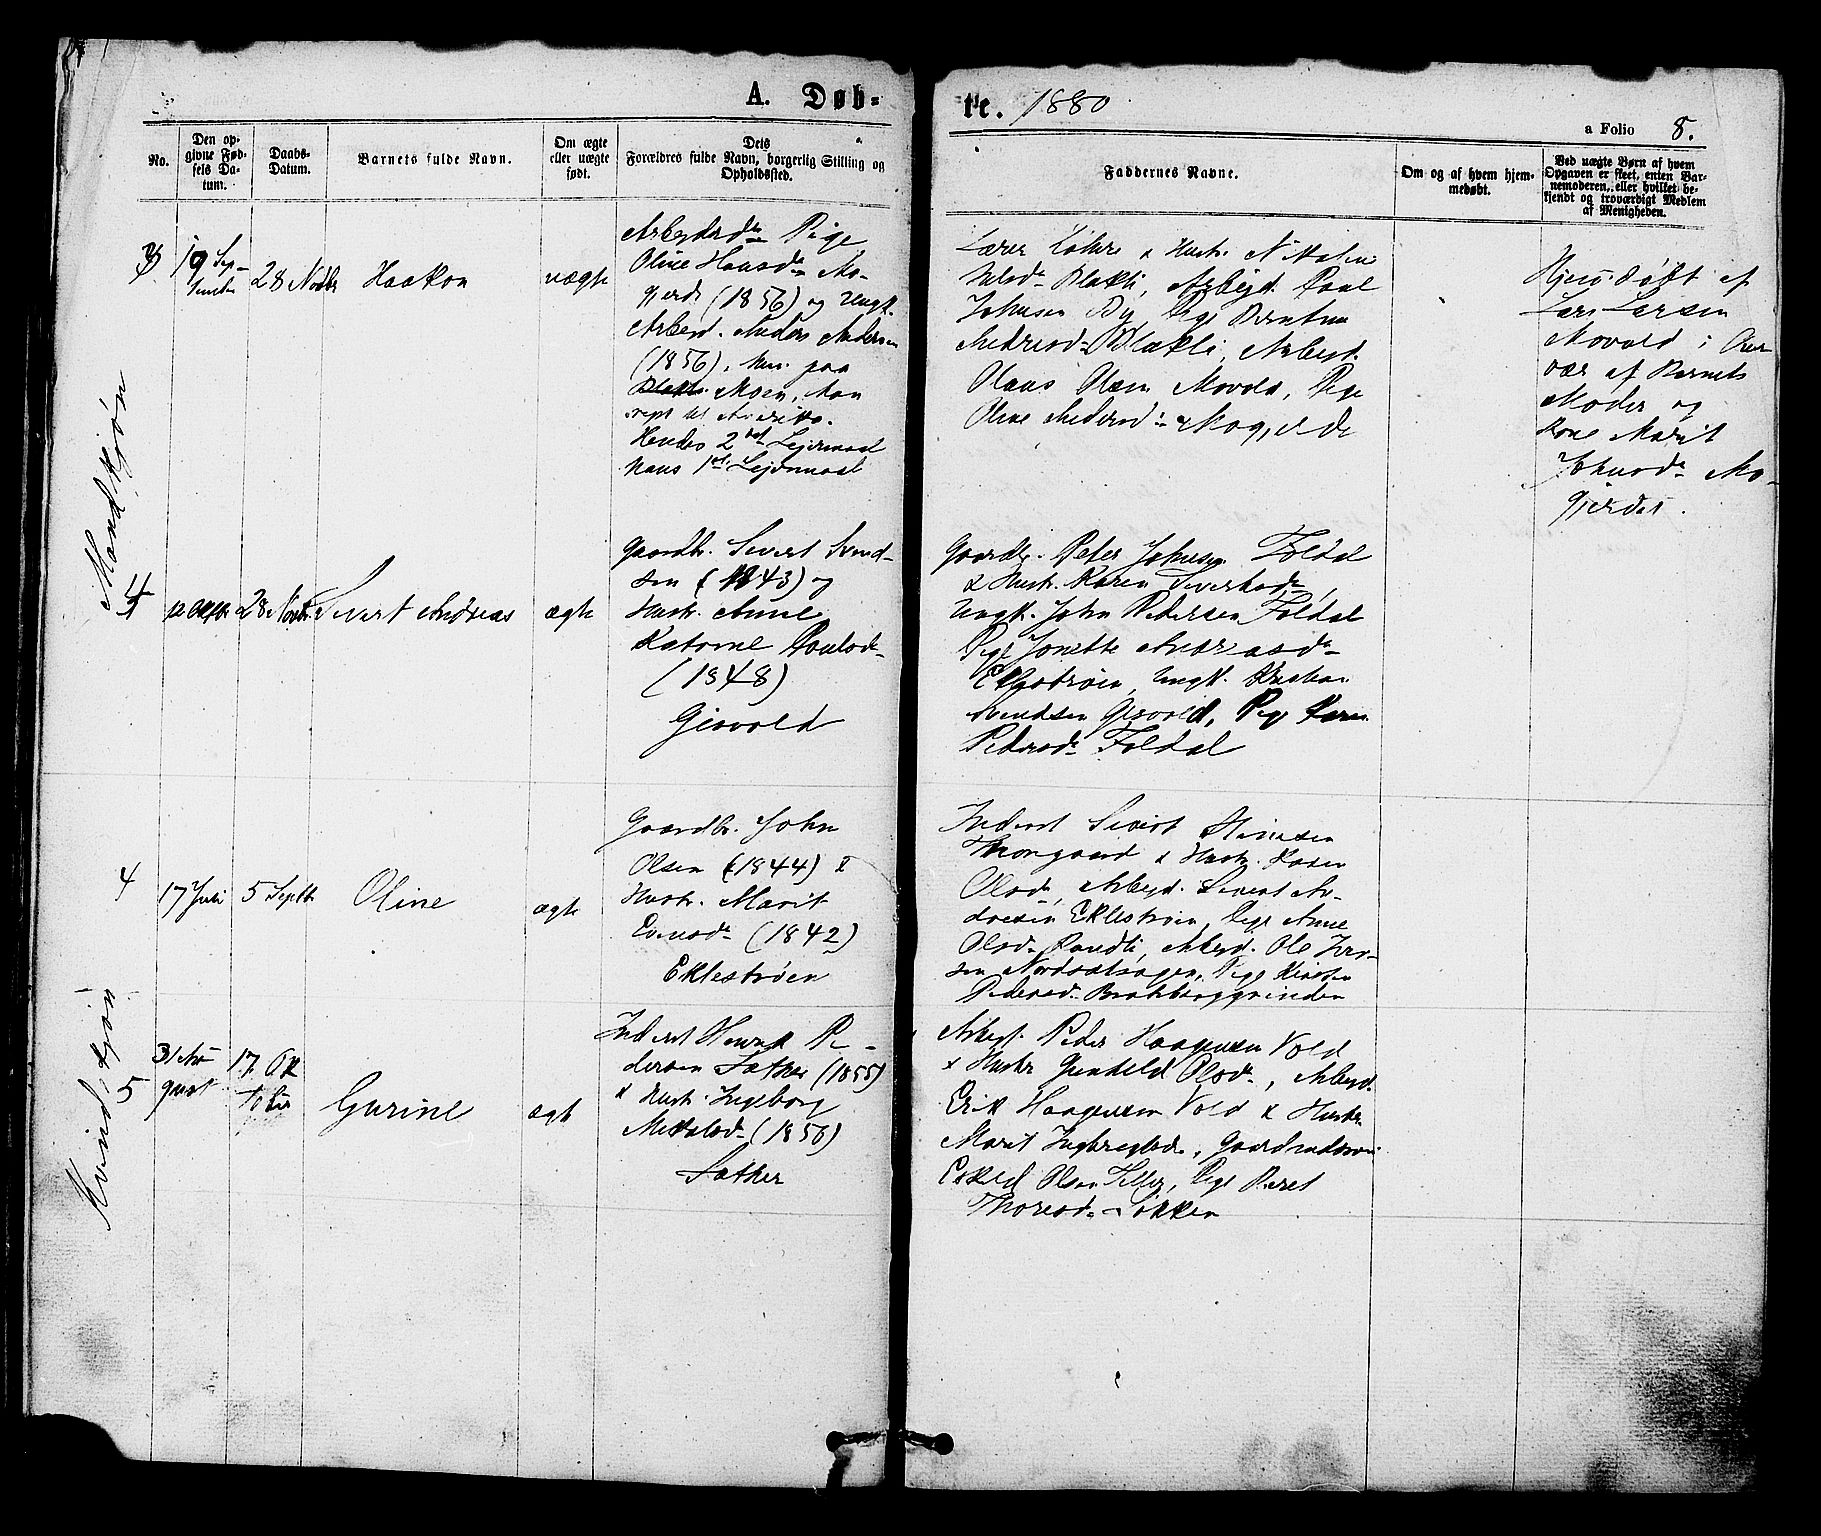 A. Døb-
te. 1880
a Folio 8.
No.
Den op-
givne Fød-
sels Da-
tum.
Daabs-
Datum.
Barnets fulde Navn.
Om ægte
eller uægte
født.
Dets
Forældres fulde Navn, borgerlig Stilling og
Opholdssted.
Faddernes Navne.
Om og af hvem hjem-
medøbt.
Ved uægte Børn af hvem
Opgaven er skeet, enten Bar-
nemoderen, eller hvilket be-
kjendt og troværdigt Medlem
af Menigheden.
Mandkjøn
3
19 Sep-
tember
28 Novbr
Haakon
uægte
Arbeidersde Pige
Oline Hansdr Mo-
gjerde (1856) og Ungk.
Arbeid. Anders Andersen
(1856), paa
Moen,
Hendes 2det Leiermaal
Hans 1ste Leiermaal
Lærer & Hustr.
Blakli, Arbeid. Paul
Johnsen By Pige
Andersdr Blækli, Arbeid.
Olaus Olsen Movold, Pige
Oline
Hjem døbt af
Lars Larsen
Movold i Over
vær af Barnets
Moder og
Kone Marit
Johnsdr Mo-
gjerdet.
4
12 Oktbr
28 Novbr.
Sivert Andreas
ægte
Gaardbr. Sivert Svend-
sen (1843) og
Hustr. Anne
Katrine Poulsdr
(1848)
Gisvold
Gaardbr. Peter Johnsen Foldal
& Hustr. Karen Sivertsdr,
Ungk. John Pedersen Foldal
Pige Jonette Andreasdr
Eklestrøen, Ungk. Kristian
Svendsen Gisvold, Pige Karen
Pedersdr Foldal
Kvindkjøn
4
17 Juli
5 Septbr
Oline
ægte
Gaardbr. John
Olsen (1844) &
Hustr. Marit
Evensdr (1842)
Eklestrøen
Inderst Sivert
Throngaard & Hustr. Karen
Olsdr, Arbeid. Sivert An-
dresen Eklestrøen, Pige Anne
Olsdr Randli, Arbeid. Ole Iver-
sen Nordsethagen, Pige Kirsten
Pedersdr Brattberggrinden
5
31 Au-
gust
17 Ok
tober
Gurine
ægte
Inderst Henrik Pe-
dersen Sæther (1855)
& Hustr. Ingeborg
Mikkelsdr (1856)
Sæther
Arbeid. Peder Haagensen Vold
& Hustr Gunhild Olsdr, Arbeid.
Erik Haagensen Vold & Hustr.
Marit Ingebrigtsdr,
Eskild Olsen Seter, Pige Beret
Thoresdr Løkken